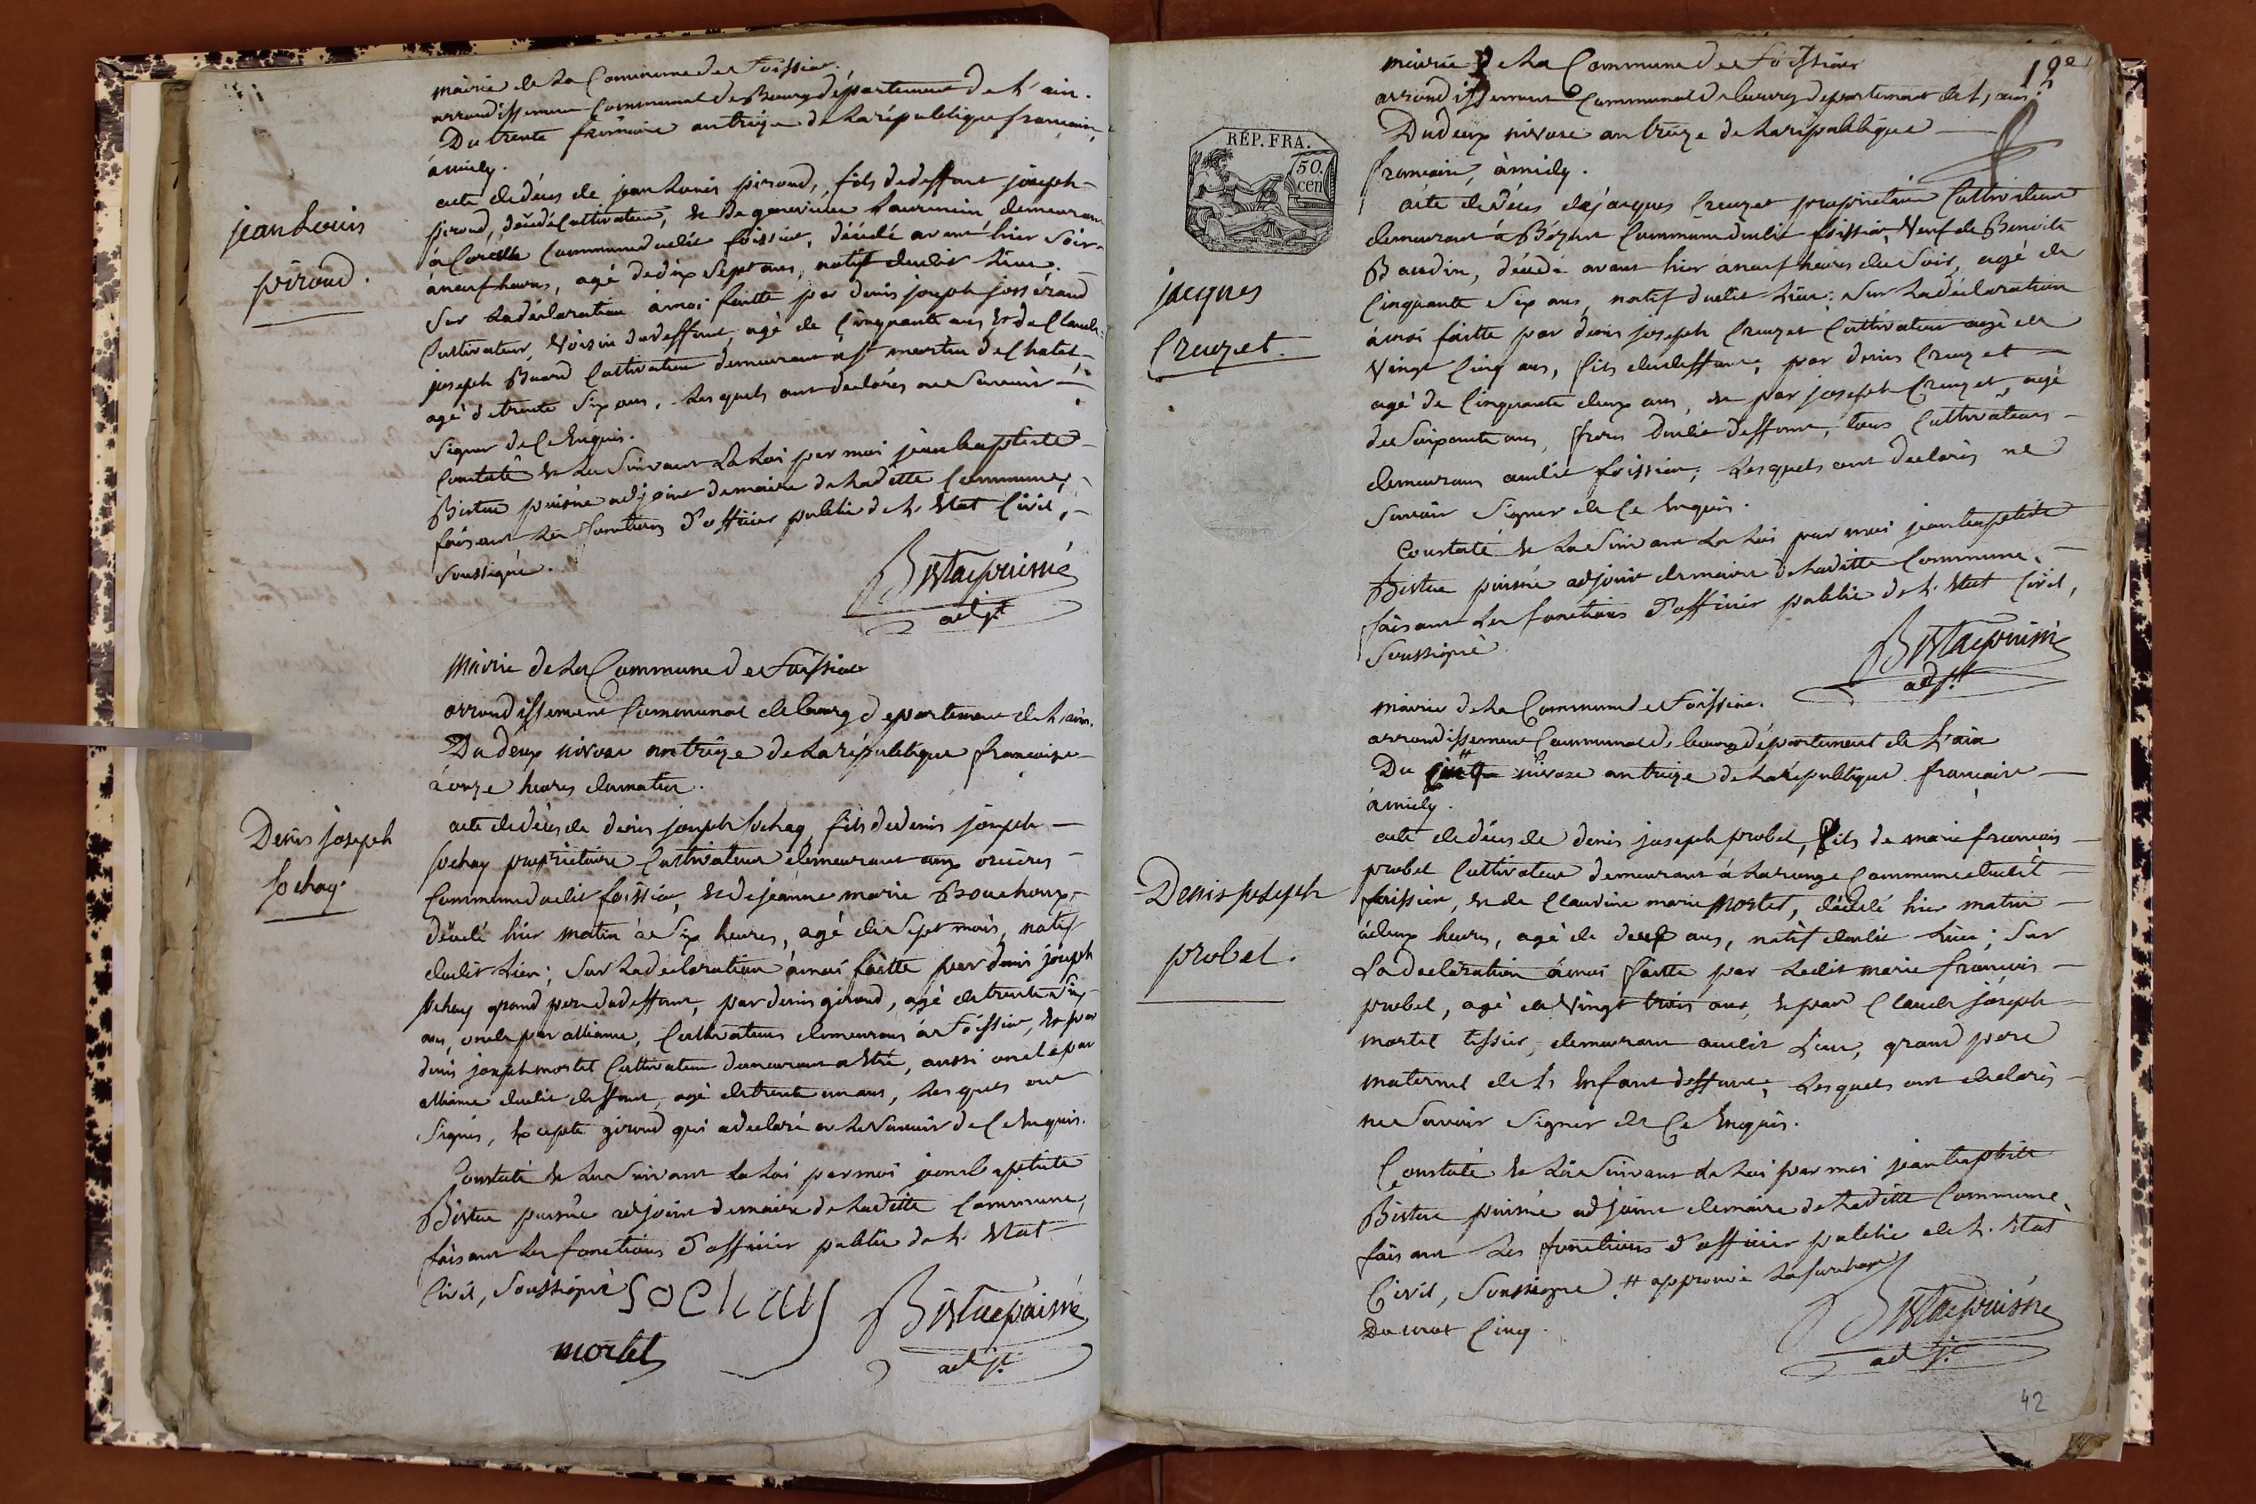 mairie de la Commune de Foissiat
arrondissement Communal de Bourg département de l'ain.
Du trente frimaire an treize de la république francaise,
à midy.
jean Louis
piroud.
acte de décès de jean Louis piroud, fils de deffunt joseph
piroud, décédé Cultivateur, et de genevieve demeurant
à Commune dudit foissiat, décédé avant hier Soir
à neuf heures, agé de dix Sept ans, natif dudit Lieu.
Sur la déclaration à moi faitte par denis joseph josserand
Cultivateur, voisin du deffunt, agé de Cinquante ans et de Claude
joseph Buard Cultivateur demeurant à St martin de Chatel
agé de trente Six ans, Lesquels ont déclarés ne Savoir
Signer de Ce Enquis.
Constaté et Lu Suivant La Loi par moi jean baptiste
Bistac puisné adjoint de maire de Laditte Commune,
faisant Les fonctions d'officier public de L'Etat Civil,
soussigné.
Bistac puisné
adjt
Mairie de La Commune de Foissiat
arrondissement Communal de bourg departement de L'ain.
Du deux nivose an treize de La république francaise
à onze heures du matin.
Denis joseph
Sochay.
acte de décès de denis joseph Sochay, fils de denis joseph
Sochay proprietaire Cultivateur demeurant aux
Commune dudit foissiat, et de jeanne marie Bouchoux,
décédé hier matin à Six heures, agé de Sept mois, natif
dudit Lieu; Sur La declaration à moi faitte par denis joseph
Sochay grand pere du deffunt, par denis giroud, agé de trente Six
ans, oncle par alliance, Cultivateurs demeurans à Foissiat, et par
denis joseph mortel Cultivateur demeurant a Etré, aussi oncle par
alliance dudit deffunt, agé de trente un ans, Lesquels ont
Signés, Excepté giroud qui a declaré ne Le Savoir de Ce Enquis.
Constaté et Lu Suivant La Loi par moi jean baptiste
Bistac puisné adjoint de maire de Laditte Commune,
faisant Les fonctions d'officier public de L'Etat
Civil, Soussigné
Sochay
Bistac puisné
mortel
adjt
12e
mairie de La Commune de Foissiat
arrondissement Communal de bourg departement de L'ain.
Du deux nivose an treize de La république
francaise, à midy.
REP. FRA.
50.
cen
jacques
Creuzet.
acte de décès de jacques Creuzet propriétaire Cultivateur
demeurant à Commune dudit foissiat, Veuf de Benoite
Baudin, décédé avant hier à neuf heures du Soir, agé de
Cinquante Six ans, natif dudit Lieu; Sur La déclaration
à moi faitte par denis joseph Creuzet Cultivateur agé de
Vingt Cinq ans, fils du deffunt, par denis Creuzet
agé de Cinquante deux ans, et par joseph Creuzet, agé
de Soixante ans, freres dudit deffunt, tous Cultivateurs
demeurans audit foissiat; Lesquels ont declarés ne
Savoir Signer de Ce Enquis.
Constaté et Lu Suivant La Loi par moi jean baptiste
Bistac puisné adjoint de maire de Laditte Commune,
faisant Les fonctions d'officier public de L'Etat Civil,
Soussigné.
Bistac puisné
adjt
mairie de La Commune de Foissiat.
arrondissement Communal de bourg département de L'ain
Du cinq # nivose an treize de La république francaise
à midy.
Denis joseph
probel.
acte de décès de denis joseph probel, fils de marie francois
probel Cultivateur demeurant à Commune dudit
foissiat, et de Claudine marie Mortel, décédé hier matin
à deux heures, agé de deux ans, natif dudit Lieu; Sur
La declaration à moi faitte par Ledit marie francois
probel, agé de Vingt trois ans, et par Claude joseph
mortel tissier, demeurant audit Lieu, grand pere
maternel de L'Enfant deffunt; Lesquels ont declarés
ne Savoir Signer de Ce Enquis.
Constaté et Lu Suivant La Loi par moi jean baptiste
Bistac puisné adjoint de maire de Laditte Commune
faisant Les fonctions d'officier public de L'Etat
Civil, Soussigné. # approuvé La Surcharge
Du mot Cinq.
Bistac puisné
adjt
42